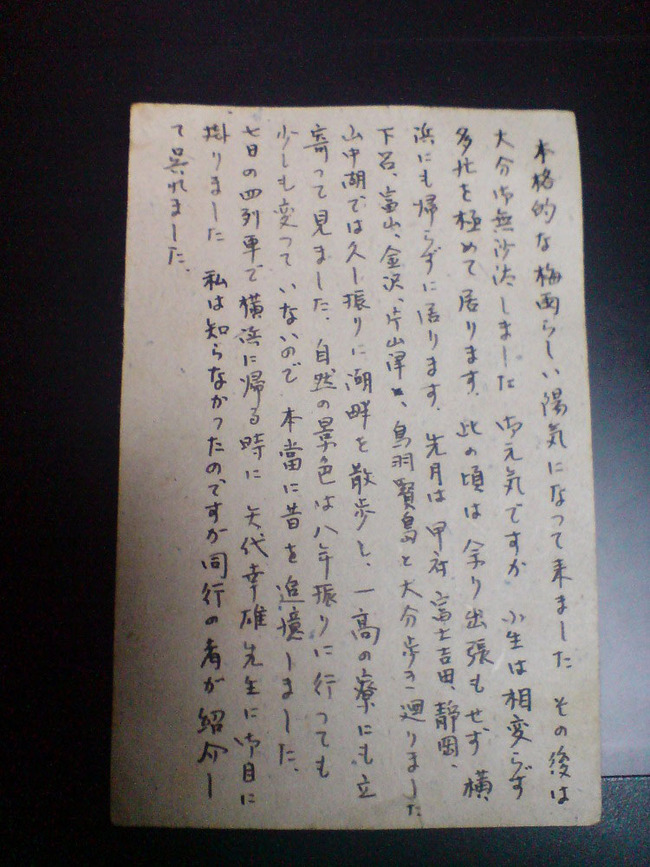 本格的な梅雨らしい陽気になって来ました その後は
大分御無沙汰しました 御元気ですか 小生は相変らず
多忙を極めて居ります。此の頃は余り出張もせず 横
浜にも帰らずに居ります。先月は 甲府 富士吉田、静岡、
下呂、富山、金沢、片山津と、鳥羽賢島と大分歩き廻りました
山中湖では久し振りに湖畔を散歩し、一高の寮にも立
寄って見ました。自然の景色は八年振りに行っても
少しも変っていないので 本當に昔を追憶しました。
七日の四列車で横浜に帰る時に 矢代幸雄先生に御目に
掛りました 私は知らなかったのですが同行の者が紹介し
て呉れました。